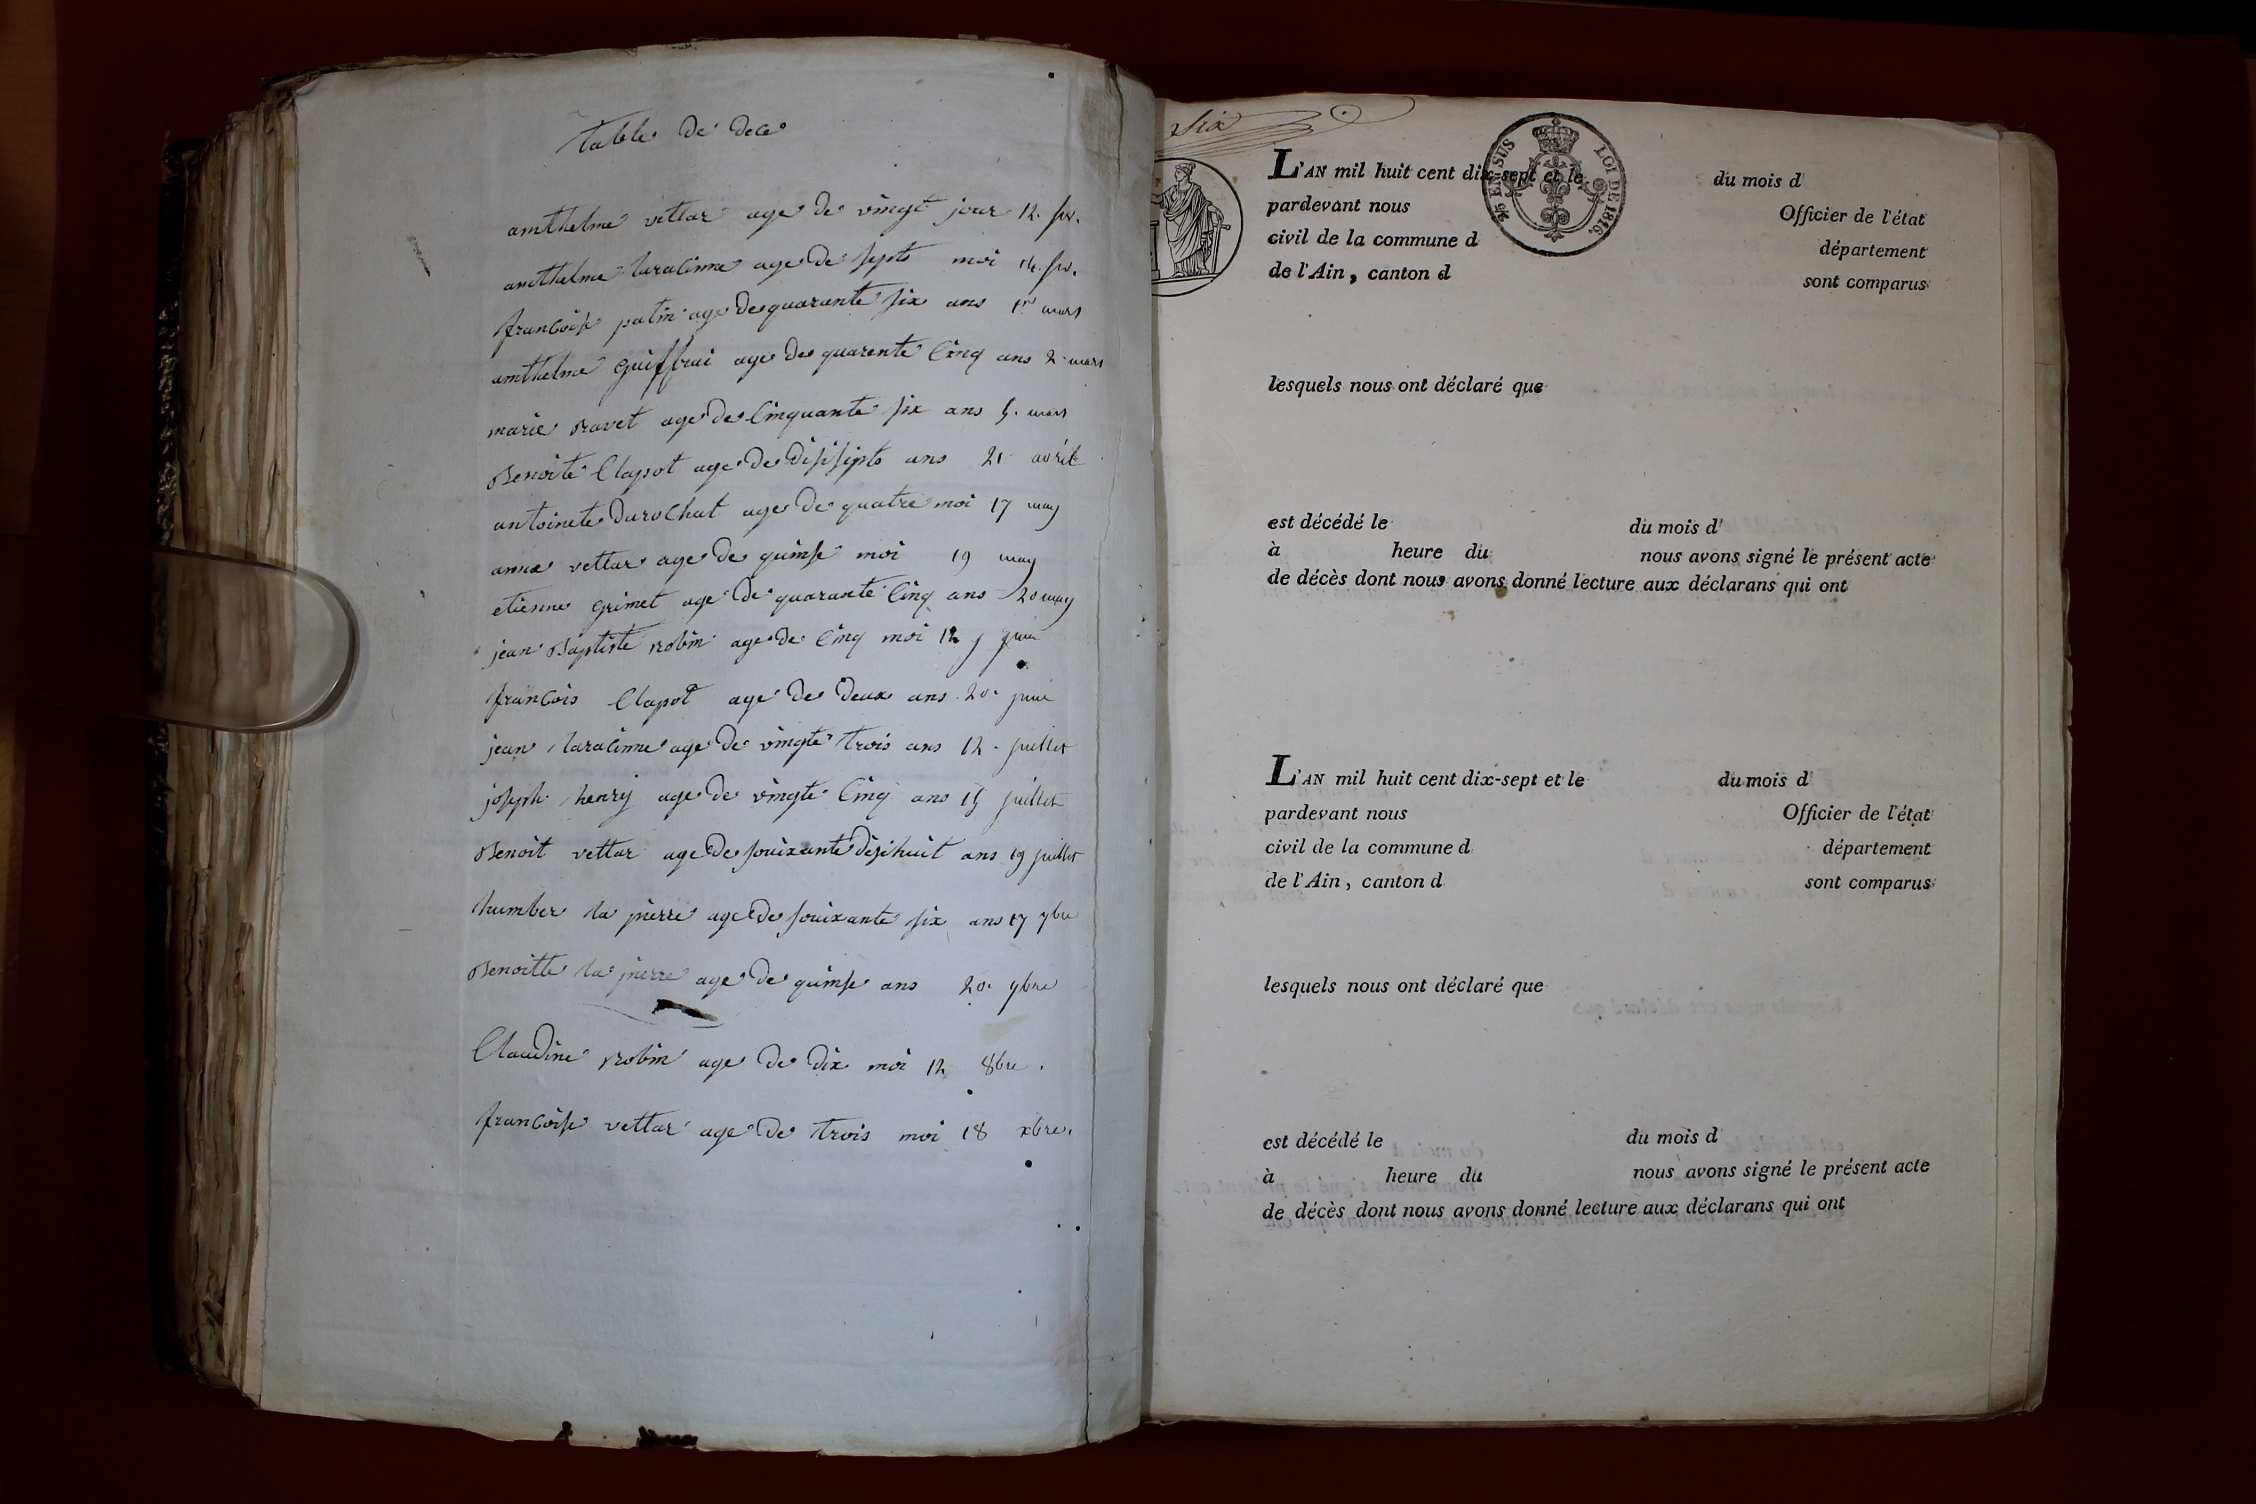 table de dece
amthelme vettar age de vingt jour 12. fev.
amthelme taracinne age de septs moi 14. fev.
francoise patin age de quarante six ans 1er mars
amthelme guiffrai age de quarente cinq ans 2 mars
marie ravet age de cinquante six ans 5. mars
Benoite Clapot age de disisepts ans 21 avril
antoinete durochat age de quatre moi 17 may
anne vettar age de quinse moi 19 may
etienne grimet age de quarante cinq ans 20 may
jean Baptiste robin age de cinq moi 12 juin
francois Clapot age de deux ans 20. juin
jean taracinne age de vingte trois ans 12. juillet
joseph henry age de vingte cinq ans 15 juillet
Benoit vettar age de souixante disihuit ans 19 juillet
humber la pierre age de souixante six ans 17 7bre
Benoitte la pierre age de quinse ans 20. 9bre
Claudine robin age de dix moi 12 8bre.
francoise vettar age de trois moi 18 xbre.
six
25 EN SUS LOI DE 1816.
L'AN mil huit cent dix-sept et le du mois d
pardevant nous Officier de l'état
civil de la commune d département
de l'Ain, canton d sont comparus
lesquels nous ont déclaré que
est décédé le du mois d
à heure du nous avons signé le présent acte
de décès dont nous avons donné lecture aux déclarans qui ont
L'AN mil huit cent dix-sept et le du mois d
pardevant nous Officier de l'état
civil de la commune d département
de l'Ain, canton d sont comparus
lesquels nous ont déclaré que
est décédé le du mois d
à heure du nous avons signé le présent acte
de décès dont nous avons donné lecture aux déclarans qui ont